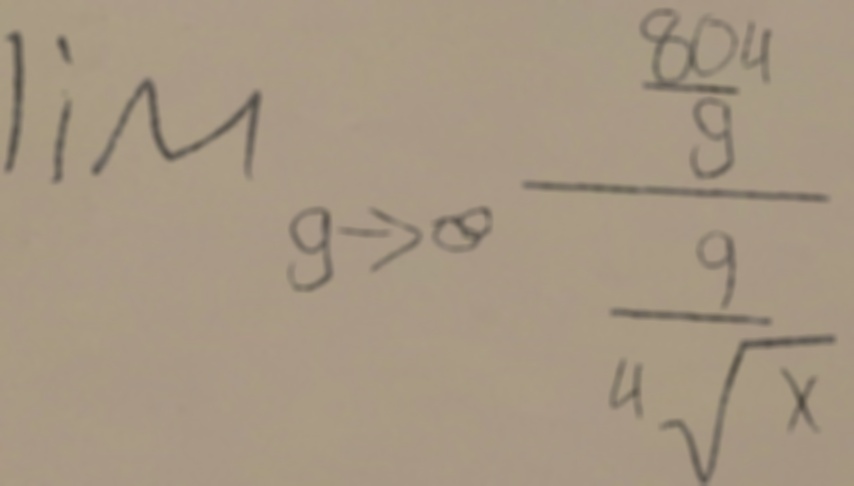 lim g→∞ \frac{\frac{804}{g}}{\frac{9}{\sqrt[4]{x}}}